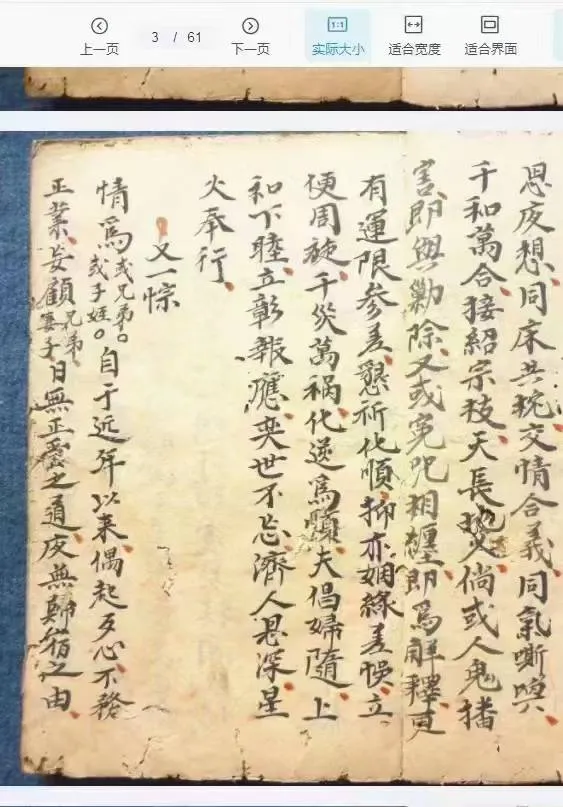 上一页
3 / 61
下一页
1:1
实际大小
适合宽度
适合界面
思夜想同床共枕交情合義同氣嘶嘆
千和萬合接紹宗枝天長地久倘或人鬼播
害即與勦除又或冤咒相纏即為觧釋更
有運限參差懇祈化順抑亦姻緣差悞立
便周旋千災萬禍化逆為順夫倡婦隨上
和下睦立彰報應奕世不忘濟人恩深星
火奉行
又一悰
情為或兄弟。或子姪。自于近年以来偶起歹心不務
正業妄顧兄弟妻子日無正爱之通夜無歸宿之由